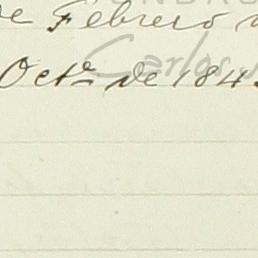 de Febrero
Carlos
Oct.e de 184